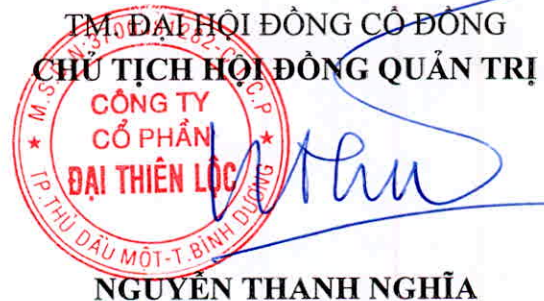 TM. ĐẠI HỘI ĐỒNG CỔ ĐÔNG
CHỦ TỊCH HỘI ĐỒNG QUẢN TRỊ
CÔNG TY
CỔ PHẦN
ĐẠI THIÊN LỘC
TP.THỦ DẦU MỘT-T.BÌNH DƯƠNG
NGUYỄN THANH NGHĨA